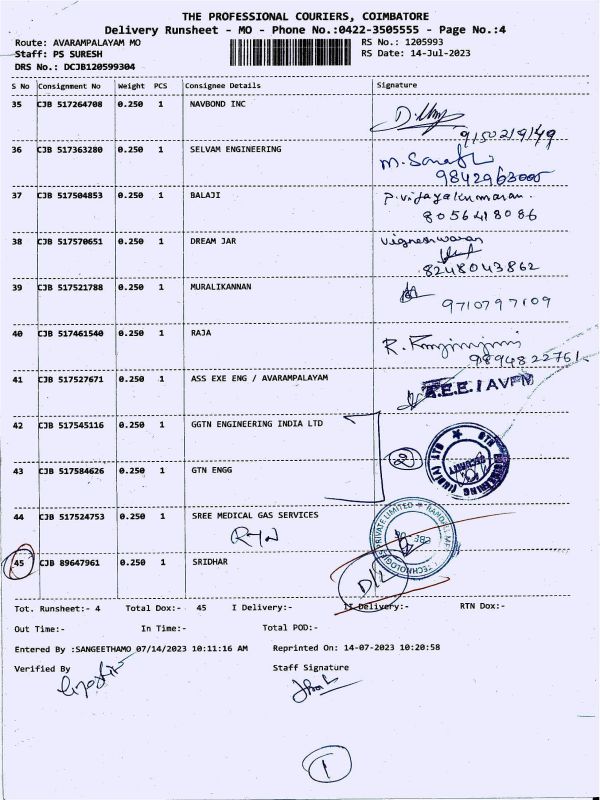 THE PROFESSIONAL COURIERS, COIMBATORE
Delivery Runsheet - MO - Phone No.:0422-3505555 - Page No.:4
Route: AVARAMPALAYAM MO RS No.: 1205993
Staff: PS SURESH RS Date: 14-Jul-2023
DRS No.: DCJB120599304
S No Consignment No Weight PCS Consignee Details Signature
35 CJB 517264708 0.250 1 NAVBOND INC
9150219149
36 CJB 517363280 0.250 1 SELVAM ENGINEERING
9842963005
37 CJB 517504853 0.250 1 BALAJI P. Vijayakumaran.
8056418086
38 CJB 517570651 0.250 1 DREAM JAR Vigneshwaran
8248043862
39 CJB 517521788 0.250 1 MURALIKANNAN
9710797109
40 CJB 517461540 0.250 1 RAJA R.
9894822761
41 CJB 517527671 0.250 1 ASS EXE ENG / AVARAMPALAYAM A.E.E./AVPM
42 CJB 517545116 0.250 1 GGTN ENGINEERING INDIA LTD
43 CJB 517584626 0.250 1 GTN ENGG 2
44 CJB 517524753 0.250 1 SREE MEDICAL GAS SERVICES
45 CJB 89647961 0.250 1 SRIDHAR
D/L
Tot. Runsheet:- 4 Total Dox:- 45 I Delivery:- II Delivery:- RTN Dox:-
Out Time:- In Time:- Total POD:-
Entered By :SANGEETHAMO 07/14/2023 10:11:16 AM Reprinted On: 14-07-2023 10:20:58
Verified By Staff Signature
1